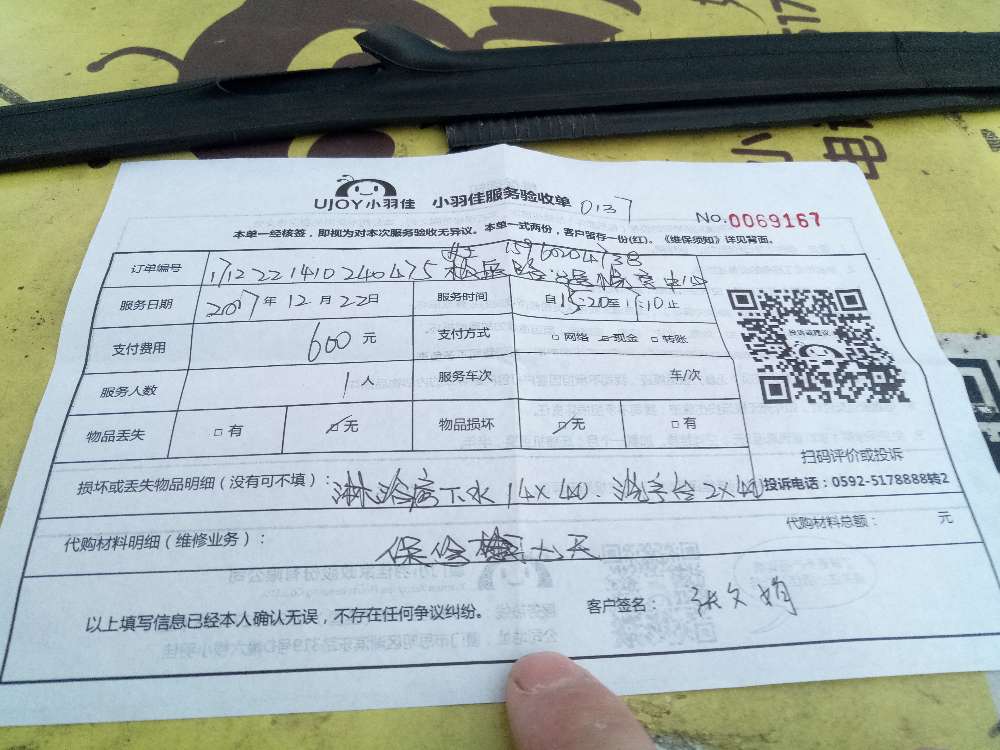 UJOY小羽佳 小羽佳服务验收单 0137
No.0069167
本单一经核签，即视为对本次服务验收无异议。本单一式两份，客户留存一份(红)。《维保须知》详见背面。
15960204738
订单编号 1712221410240475
服务日期 2017年12月22日 服务时间 自15:20至17:10止
支付费用 600元 支付方式 □网络 ☑现金 □转账
服务人数 1人 服务车次 车/次
物品丢失 □有 ☑无 物品损坏 ☑无 □有
投诉或建议
扫码评价或投诉
损坏或丢失物品明细（没有可不填）：淋浴房下水14×40、洗手台2×40
投诉电话：0592-5178888转2
代购材料明细（维修业务）： 代购材料总额： 元
保修 十天
以上填写信息已经本人确认无误，不存在任何争议纠纷。 客户签名：张文娟